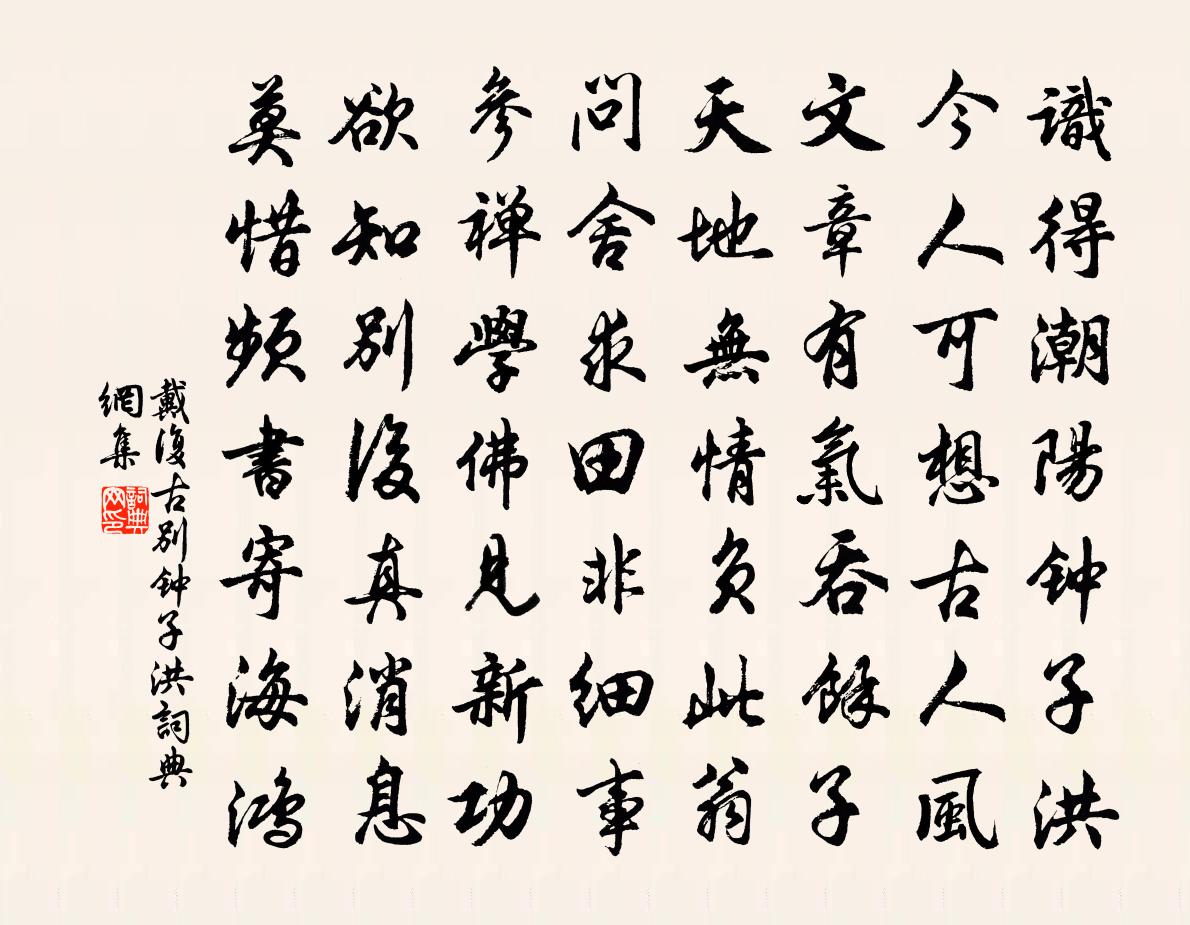 識得潮陽钟子洪
今人可想古人風
文章有氣吞餘子
天地無情負此翁
問舍求田非细事
參禅學佛見新功
欲知別後真消息
莫惜频書寄海鸿
戴復古別钟子洪詞典
網集
詞典
网印